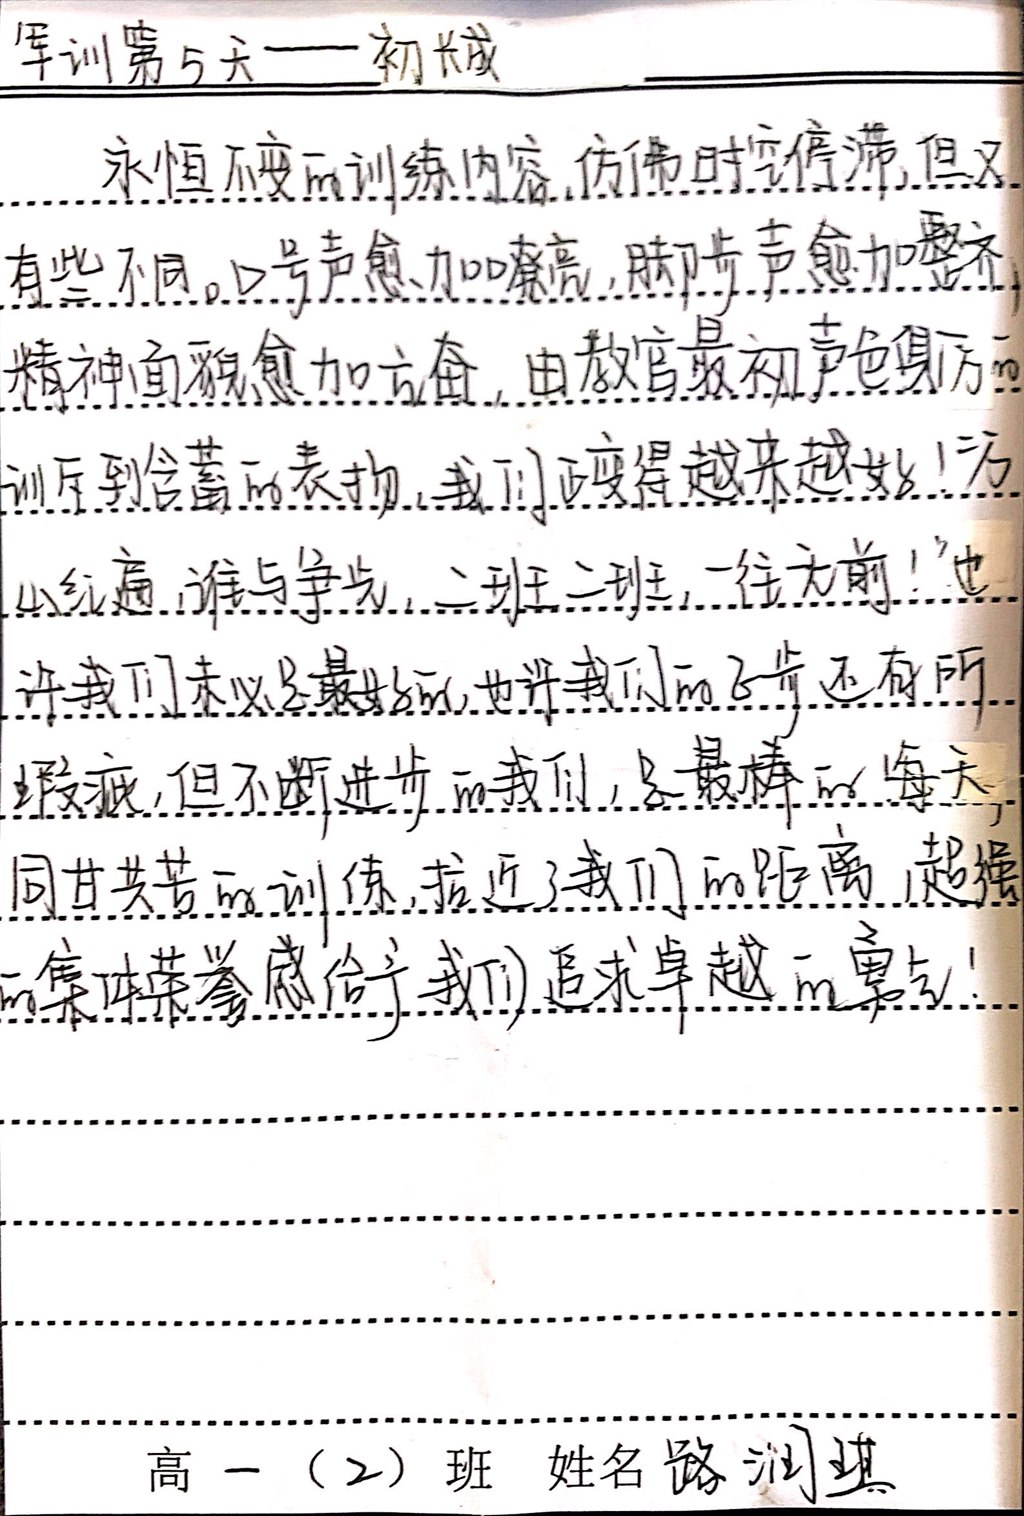 军训第5天——初长成
永恒不变的训练内容,仿佛时空停滞,但又
有些不同。口号声愈加嘹亮,脚步声愈加整齐,
精神面貌愈加亢奋,由教官最初声色俱厉的
训斥到含蓄的表扬,我们正变得越来越好!"万
山红遍,谁与争先,二班二班,一往无前!"也
许我们未必是最好的,也许我们的正步还有所
瑕疵,但不断进步的我们,是最棒的 每天,
同甘共苦的训练,拉近了我们的距离,超强
的集体荣誉感给予我们追求卓越的勇气!
高一(2)班 姓名 路润琪